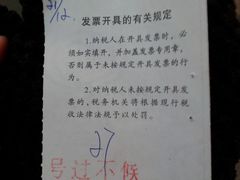 21/12
发票开具的有关规定
1.纳税人在开具发票时,必
须如实填开,并加盖发票专用章,
否则属于未按规定开具发票的行
为。
2.对纳税人未按规定开具发
票的,税务机关将根据现行税
收法律法规予以处罚。
27
号过不候